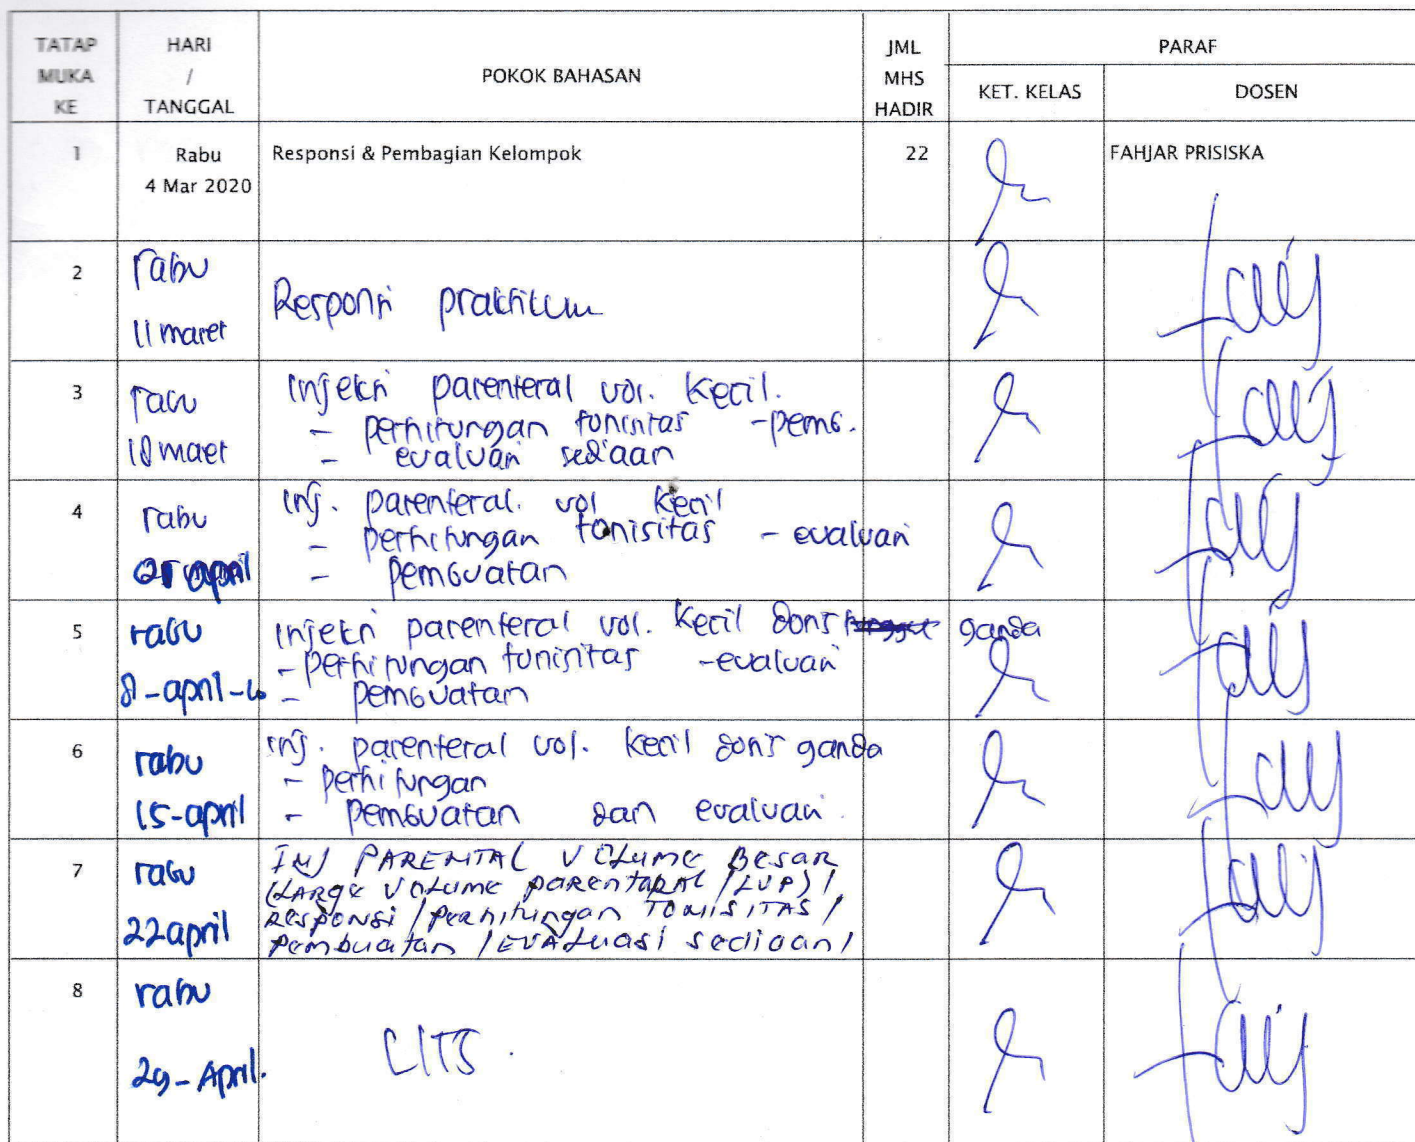 TATAP MUKA KE
HARI / TANGGAL
POKOK BAHASAN
JML MHS HADIR
PARAF
KET. KELAS
DOSEN
1
Rabu
4 Mar 2020
Responsi & Pembagian Kelompok
22
FAHJAR PRISISKA
2
rabu
11 maret
Responsi praktikum
3
rabu
18 maret
Injeksi parenteral vol. kecil.
- perhitungan tonisitas - pemb.
- evaluasi sediaan
4
rabu
april
Inj. parenteral. vol kecil
- perhitungan tonisitas - evaluasi
- pembuatan
5
rabu
8-april-20
Injeksi parenteral vol. kecil dosis ganda
- perhitungan tonisitas - evaluasi
- pembuatan
6
rabu
15-april
inj. parenteral vol. kecil dosis ganda
- perhitungan
- pembuatan dan evaluasi.
7
rabu
22 april
INJ PARENTAL VOLUME Besar
(LARGE VOLUME parentaral / LVP) /
Responsi / perhitungan TONISITAS /
Pembuatan / EVALuasi sediaan /
8
rabu
29-April.